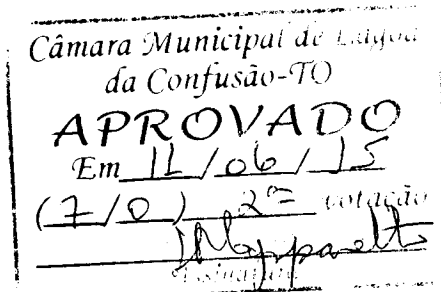 Câmara Municipal de Lagoa
da Confusão-TO
APROVADO
Em 11/06/15
(7/0) 2ª votação
Assinatura